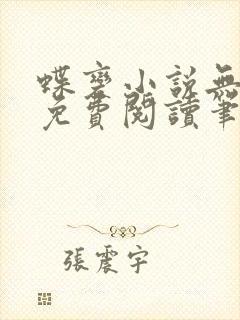 蝶變小說無
免費閱讀筆
張震宇